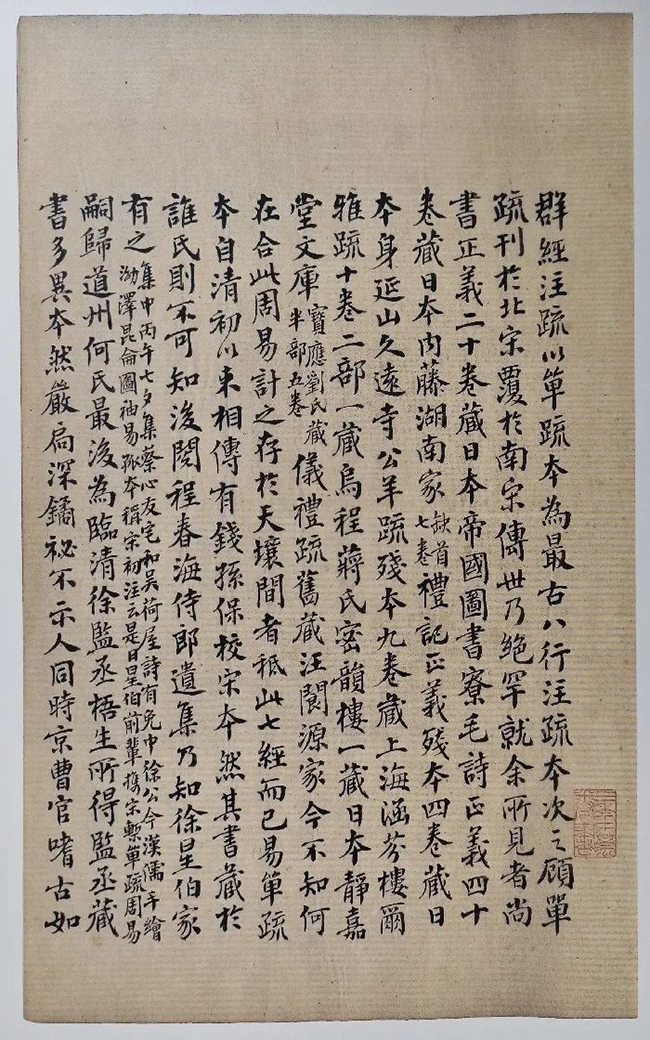 群經注疏以單疏本為最古八行注疏本次之顧單
疏刊於北宋覆於南宋傳世乃絕罕就余所見者尚
書正義二十卷藏日本帝國圖書寮毛詩正義四十
卷藏日本內藤湖南家缺首七卷禮記正義殘本四卷藏日
本身延山久遠寺公羊疏殘本九卷藏上海涵芬樓爾
雅疏十卷二部一藏烏程蔣氏密韻樓一藏日本靜嘉
堂文庫寶應劉氏藏半部五卷儀禮疏舊藏汪閬源家今不知何
在合此周易計之存於天壤間者秪此七經而已易單疏
本自清初以來相傳有錢孫保校宋本然其書藏於
誰氏則不可知後閱程春海侍郎遺集乃知徐星伯家
有之集中丙午七夕集蔡心友宅和吳荷屋詩有免巾徐公今漢儒手繪泑澤昆侖圖袖易疏本稱宋初注云是日星伯前輩攜宋槧單疏周易
嗣歸道州何氏最後為臨清徐監丞梧生所得監丞藏
書多異本然嚴扃深鐍祕不示人同時京曹官嗜古如